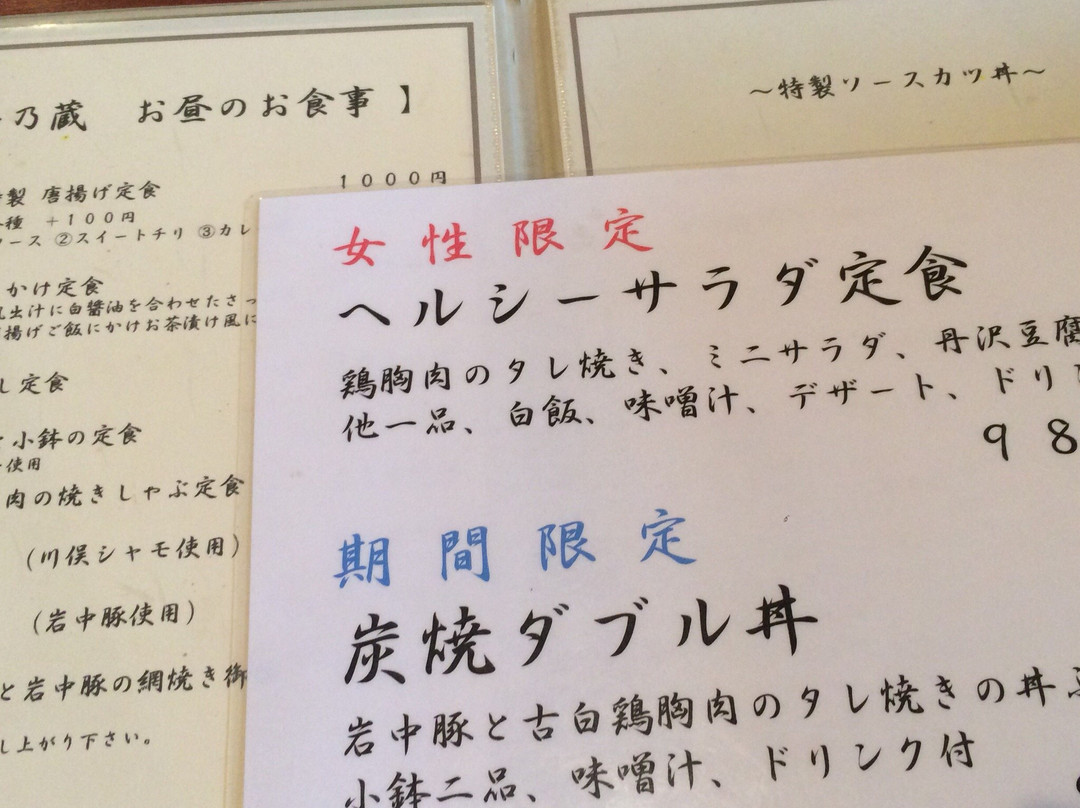 乃蔵 お昼のお食事 】
製 唐揚げ定食 1000円
種 +100円
ース ②スイートチリ ③カレ
かけ定食
出汁に白醤油を合わせたさっ
揚げご飯にかけお茶漬け風に
し定食
小鉢の定食
使用
肉の焼きしゃぶ定食
(川俣シャモ使用)
(岩中豚使用)
と岩中豚の網焼き御
し上がり下さい。
~特製ソースカツ丼~
女性限定
ヘルシーサラダ定食
鶏胸肉のタレ焼き、ミニサラダ、丹沢豆腐
他一品、白飯、味噌汁、デザート、ドリ
98
期間限定
炭焼ダブル丼
岩中豚と古白鶏胸肉のタレ焼きの丼
小鉢二品、味噌汁、ドリンク付